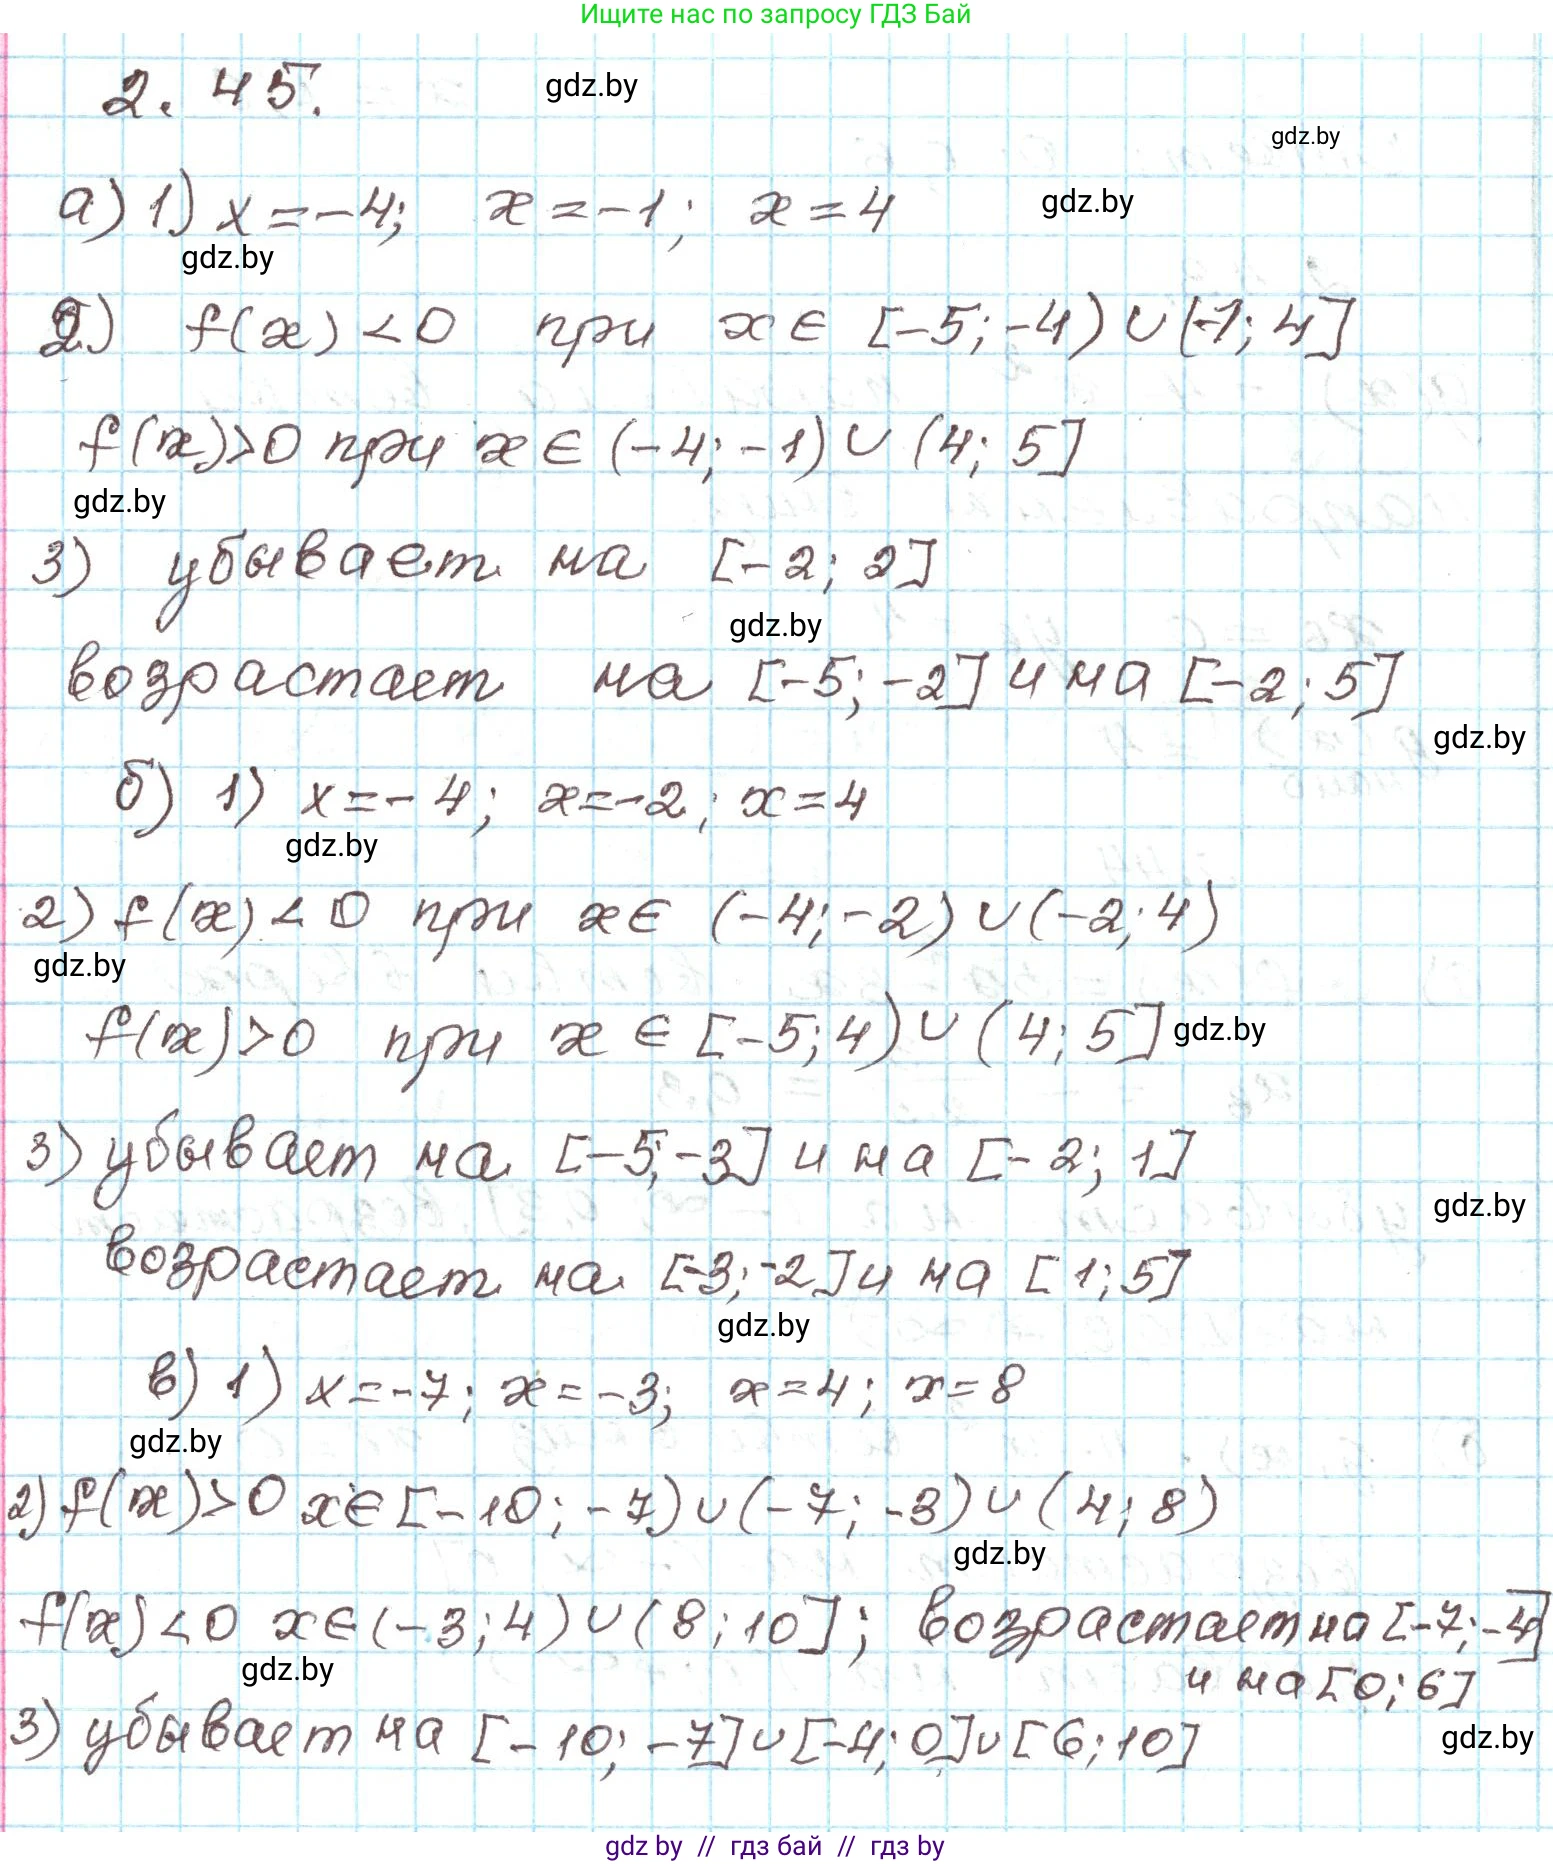 Ищите нас по запросу ГДЗ Бай
2. 45.
gdz.by
gdz.by
а) 1) x = -4; x = -1; x = 4
gdz.by
gdz.by
2) f(x) < 0 при x ∈ [-5; -4) ∪ (-1; 4]
f(x) > 0 при x ∈ (-4; -1) ∪ (4; 5]
gdz.by
3) убывает на [-2; 2]
gdz.by
возрастает на [-5; -2] и на [-2; 5]
gdz.by
б) 1) x = -4; x = -2; x = 4
gdz.by
2) f(x) < 0 при x ∈ (-4; -2) ∪ (-2; 4)
gdz.by
f(x) > 0 при x ∈ [-5; 4) ∪ (4; 5]
gdz.by
3) убывает на [-5; -3] и на [-2; 1]
gdz.by
возрастает на [-3; -2] и на [1; 5]
gdz.by
в) 1) x = -7; x = -3; x = 4; x = 8
gdz.by
2) f(x) > 0 x ∈ [-10; -7) ∪ (-7; -3) ∪ (4; 8)
gdz.by
f(x) < 0 x ∈ (-3; 4) ∪ (8; 10]; возрастает на [-7; -4]
gdz.by
и на [0; 6]
3) убывает на [-10; -7] ∪ [-4; 0] ∪ [6; 10]
gdz.by
gdz by // гдз бай // гдз by